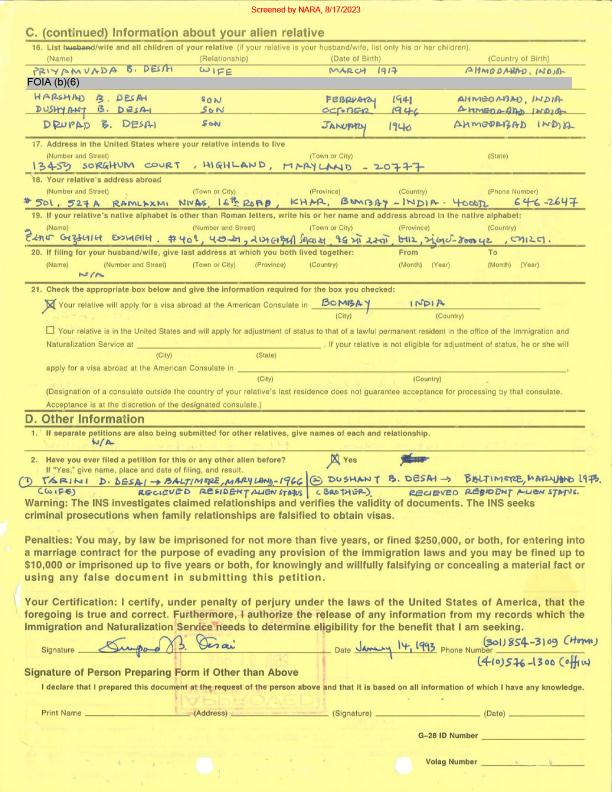 Screened by NARA, 8/17/2023
C. (continued) Information about your alien relative
16. List husband/wife and all children of your relative (if your relative is your husband/wife, list only his or her children).
(Name) (Relationship) (Date of Birth) (Country of Birth)
PRIYAMVADA B. DESAI WIFE MARCH 1917 AHMEDABAD, INDIA
FOIA (b)(6)
HARSHAD B. DESAI SON FEBRUARY 1941 AHMEDABAD, INDIA
DUSHYANT B. DESAI SON OCTOBER 1946 AHMEDABAD, INDIA
DRUPAD B. DESAI SON JANUARY 1940 AHMEDABAD INDIA
17. Address in the United States where your relative intends to live
(Number and Street) (Town or City) (State)
13459 SORGHUM COURT, HIGHLAND, MARYLAND - 20777
18. Your relative's address abroad
(Number and Street) (Town or City) (Province) (Country) (Phone Number)
#501, 527A RAMLAXMI NIVAS, 16th ROAD, KHAR, BOMBAY - INDIA - 400052 646-2647
19. If your relative's native alphabet is other than Roman letters, write his or her name and address abroad in the native alphabet:
(Name) (Number and Street) (Town or City) (Province) (Country)
20. If filing for your husband/wife, give last address at which you both lived together: From To
(Name) (Number and Street) (Town or City) (Province) (Country) (Month) (Year) (Month) (Year)
N/A
21. Check the appropriate box below and give the information required for the box you checked:
Your relative will apply for a visa abroad at the American Consulate in BOMBAY INDIA
(City) (Country)
Your relative is in the United States and will apply for adjustment of status to that of a lawful permanent resident in the office of the Immigration and
Naturalization Service at . If your relative is not eligible for adjustment of status, he or she will
(City) (State)
apply for a visa abroad at the American Consulate in ,
(City) (Country)
(Designation of a consulate outside the country of your relative's last residence does not guarantee acceptance for processing by that consulate.
Acceptance is at the discretion of the designated consulate.)
D. Other Information
1. If separate petitions are also being submitted for other relatives, give names of each and relationship.
N/A
2. Have you ever filed a petition for this or any other alien before? Yes
If "Yes," give name, place and date of filing, and result.
(1) TARINI D. DESAI → BALTIMORE, MARYLAND - 1966 (2) DUSHANT B. DESAI → BALTIMORE, MARYLAND 1973.
(WIFE) RECIEVED RESIDENT ALIEN STATUS (BROTHER) RECIEVED RESIDENT ALIEN STATUS.
Warning: The INS investigates claimed relationships and verifies the validity of documents. The INS seeks
criminal prosecutions when family relationships are falsified to obtain visas.
Penalties: You may, by law be imprisoned for not more than five years, or fined $250,000, or both, for entering into
a marriage contract for the purpose of evading any provision of the immigration laws and you may be fined up to
$10,000 or imprisoned up to five years or both, for knowingly and willfully falsifying or concealing a material fact or
using any false document in submitting this petition.
Your Certification: I certify, under penalty of perjury under the laws of the United States of America, that the
foregoing is true and correct. Furthermore, I authorize the release of any information from my records which the
Immigration and Naturalization Service needs to determine eligibility for the benefit that I am seeking.
Signature Drupad B. Desai Date January 14, 1993 Phone Number (301) 854-3109 (Home)
(410) 576-1300 (Office)
Signature of Person Preparing Form if Other than Above
I declare that I prepared this document at the request of the person above and that it is based on all information of which I have any knowledge.
Print Name (Address) (Signature) (Date)
G-28 ID Number
Volag Number